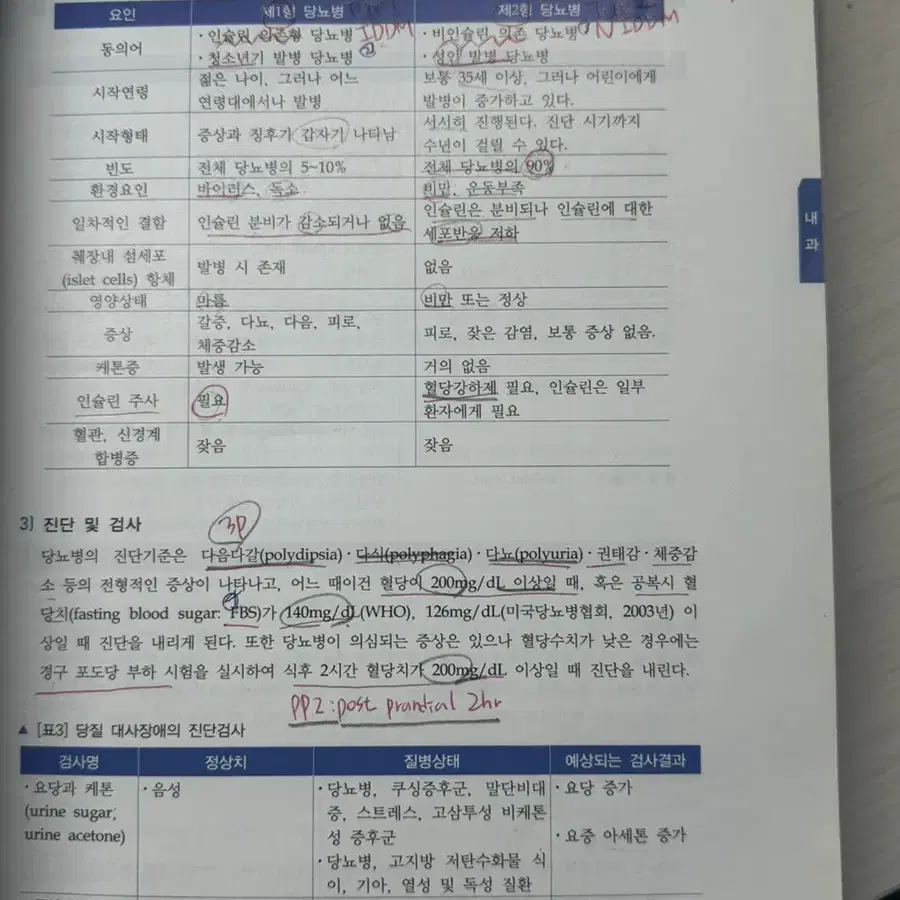 요인 제1형 당뇨병 제2형 당뇨병
동의어
· 인슐린 의존형 당뇨병 IDDM
· 청소년기 발병 당뇨병
· 비인슐린 의존 당뇨병 NIDDM
· 성인 발병 당뇨병
시작연령
젊은 나이, 그러나 어느
연령대에서나 발병
보통 35세 이상, 그러나 어린이에게
발병이 증가하고 있다.
시작형태
증상과 징후가 갑자기 나타남
서서히 진행된다. 진단 시기까지
수년이 걸릴 수 있다.
빈도 전체 당뇨병의 5~10% 전체 당뇨병의 90%
환경요인 바이러스, 독소 비만, 운동부족
일차적인 결함
인슐린 분비가 감소되거나 없음
인슐린은 분비되나 인슐린에 대한
세포반응 저하
췌장내 섬세포
(islet cells) 항체
발병 시 존재
없음
영양상태 마름 비만 또는 정상
증상
갈증, 다뇨, 다음, 피로,
체중감소
피로, 잦은 감염, 보통 증상 없음.
케톤증 발생 가능 거의 없음
인슐린 주사
필요
혈당강하제 필요, 인슐린은 일부
환자에게 필요
혈관, 신경계
합병증
잦음
잦음
내
과
3P
3) 진단 및 검사
당뇨병의 진단기준은 다음다갈(polydipsia)·다식(polyphagia)·다뇨(polyuria)·권태감·체중감
소 등의 전형적인 증상이 나타나고, 어느 때이건 혈당이 200mg/dL 이상일 때, 혹은 공복시 혈
당치(fasting blood sugar: FBS)가 140mg/dL(WHO), 126mg/dL(미국당뇨병협회, 2003년) 이
상일 때 진단을 내리게 된다. 또한 당뇨병이 의심되는 증상은 있으나 혈당수치가 낮은 경우에는
경구 포도당 부하 시험을 실시하여 식후 2시간 혈당치가 200mg/dL 이상일 때 진단을 내린다.
PP2 : post prandial 2hr
▲ [표3] 당질 대사장애의 진단검사
검사명 정상치 질병상태 예상되는 검사결과
· 요당과 케톤
(urine sugar,
urine acetone)
· 음성
· 당뇨병, 쿠싱증후군, 말단비대
증, 스트레스, 고삼투성 비케톤
성 증후군
· 당뇨병, 고지방 저탄수화물 식
이, 기아, 열성 및 독성 질환
· 요당 증가
· 요중 아세톤 증가